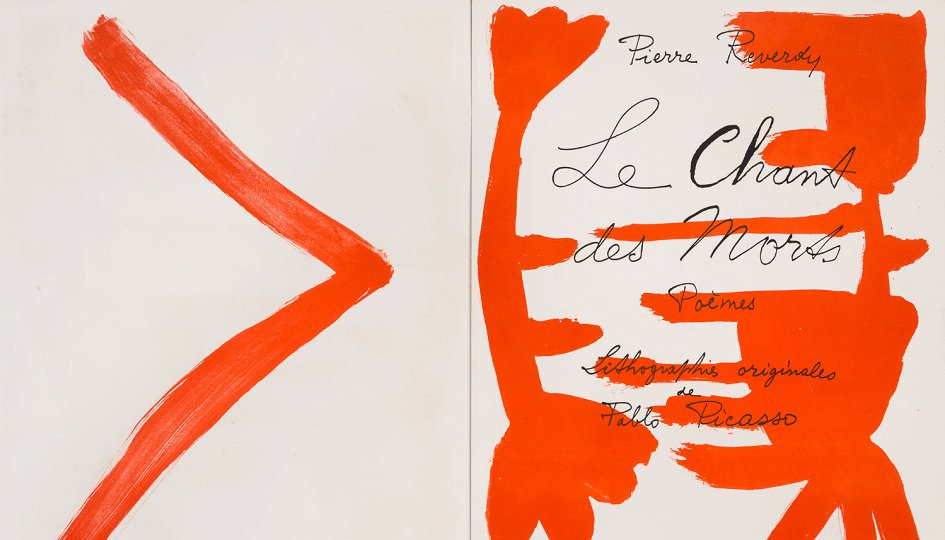 Pierre Reverdy
Le Chant
des Morts
Poèmes
Lithographies originales
de
Pablo Picasso